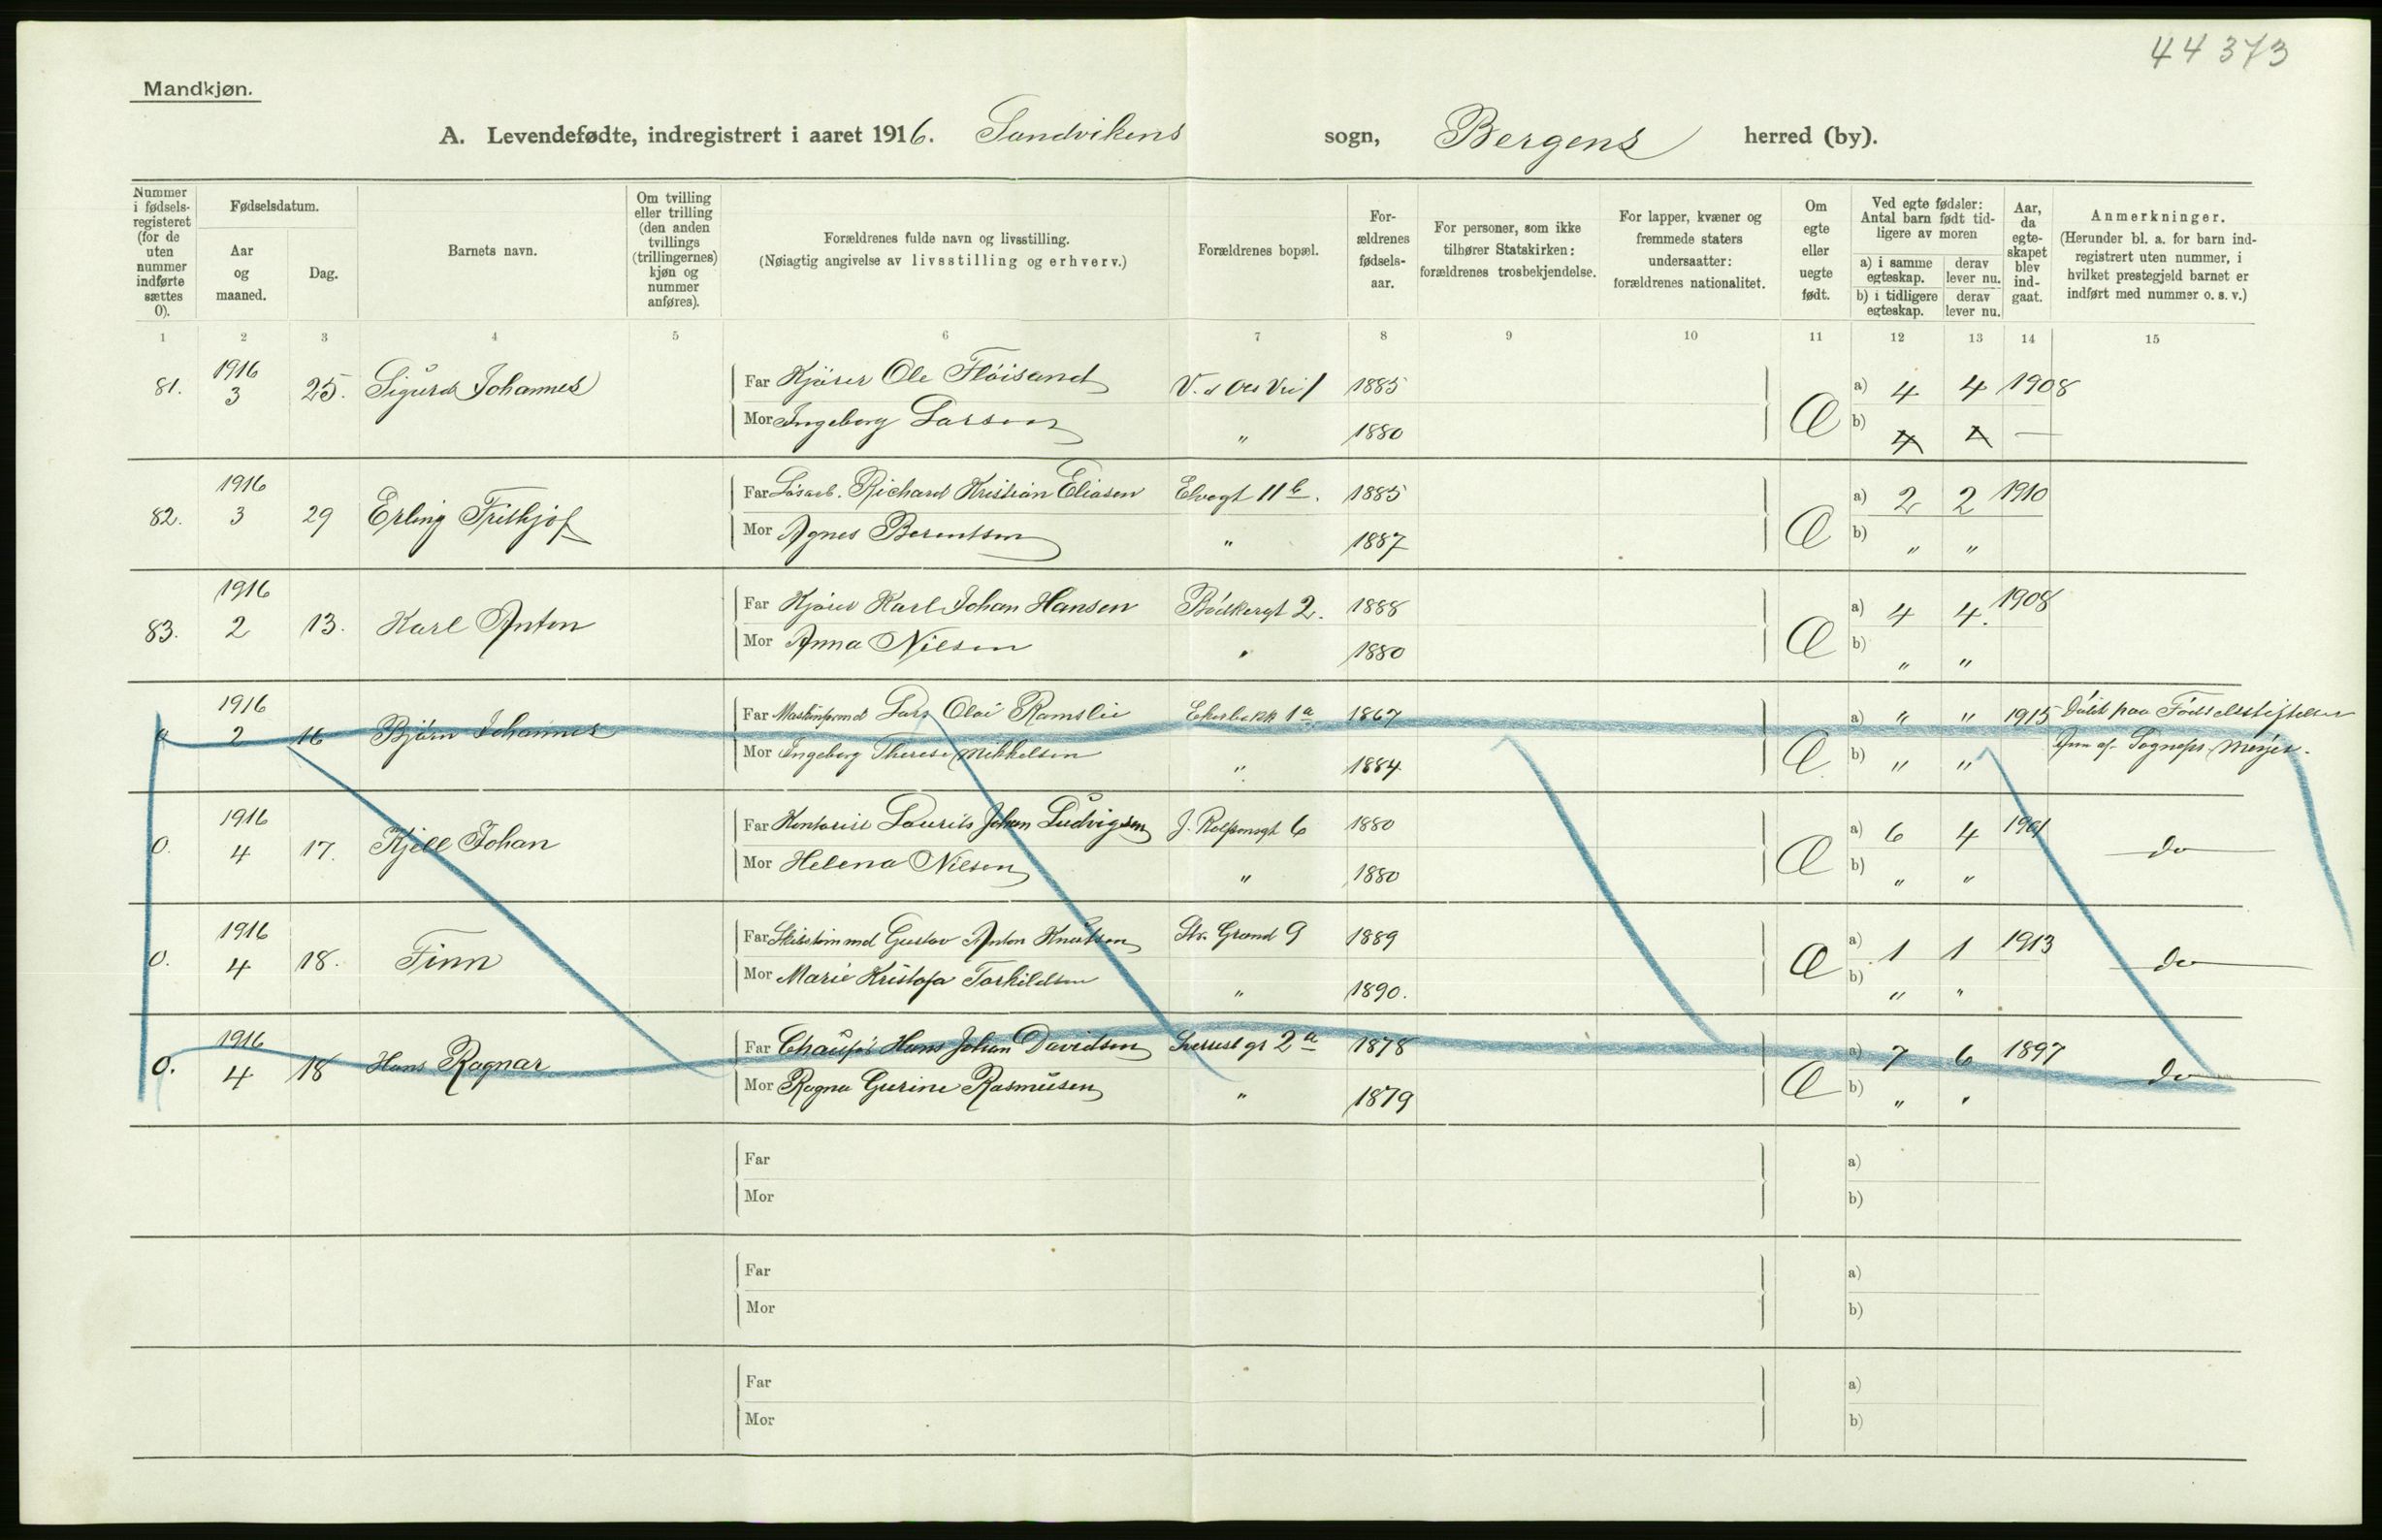 44373
Mandkjøn.
A. Levendefødte, indregistrert i aaret 1916. Sandvikens sogn, Bergens herred (by).
Nummer i fødsels-registeret (for de uten nummer indførte sættes 0).
Fødselsdatum.
Aar og maaned.
Dag.
Barnets navn.
Om tvilling eller trilling (den anden tvillings (trillingernes) kjøn og nummer anføres).
Forældrenes fulde navn og livsstilling.
(Nøiagtig angivelse av livsstilling og erhverv.)
Forældrenes bopæl.
For-ældrenes fødsels-aar.
For personer, som ikke tilhører Statskirken: forældrenes trosbekjendelse.
For lapper, kvæner og fremmede staters undersaatter: forældrenes nationalitet.
Om egte eller uegte født.
Ved egte fødsler: Antal barn født tid-ligere av moren
a) i samme egteskap. derav lever nu.
b) i tidligere egteskap. derav lever nu.
Aar, da egte-skapet blev ind-gaat.
Anmerkninger.
(Herunder bl. a. for barn ind-registrert uten nummer, i hvilket prestegjeld barnet er indført med nummer o. s. v.)
1 2 3 4 5 6 7 8 9 10 11 12 13 14 15
81. 1916 3 25. Sigurd Johannes Far Kjører Ole Fløisand 1885 Æ a) 4 4 1908
Mor Ingeborg Larsen " 1880 b) 4 —
82. 1916 3 29 Erling Frithjof Far Løsarb. Richard Kristian Eliasen Elvegt 11 b. 1885 Æ a) 2 2 1910
Mor Agnes Berentsen " 1887 b) " "
83. 1916 2 13. Karl Anton Far Kjører Karl Johan Hansen Bødkergt 2. 1888 Æ a) 4 4. 1908
Mor Anna Nilsen " 1880 b) " "
0 1916 2 16 Bjørn Johannes Far Lars Olai Ramslie 1a 1867 Æ a) " " 1915 Døbt paa Fødselsstiftelsen
Mor Ingeborg Therese Mikkelsen " 1884 b) " " af Sognepr. Meyer.
0. 1916 4 17. Kjell Johan Far Kontorist Laurits Johan Ludvigsen J. Rolfsensgt 6 1880 Æ a) 6 4 1901 do
Mor Helena Nilsen " 1880 b) " "
0. 1916 4 18. Finn Far Gustav Anton Knutsen Str. Grand 9 1889 Æ a) 1 1 1913 do
Mor Marie Kristofa Torkildsen " 1890. b) " "
0. 1916 4 18 Hans Ragnar Far Chaufør Hans Johan Davidsen Sverresgt 2 a 1878 Æ a) 7 6 1897 do
Mor Ragna Gurine Rasmussen " 1879 b) " "
Far a)
Mor b)
Far a)
Mor b)
Far a)
Mor b)